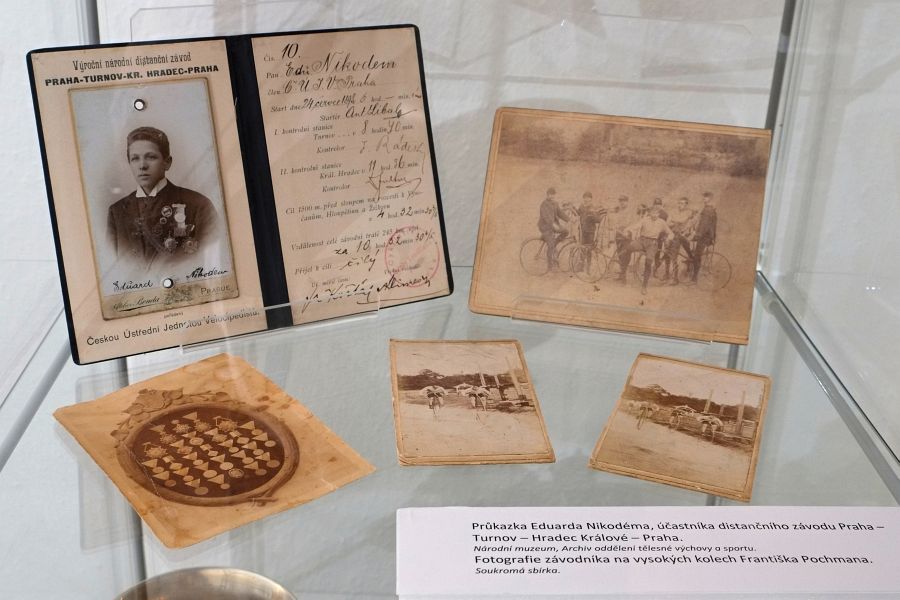 Výroční národní distanční závod
PRAHA-TURNOV-KR. HRADEC-PRAHA
Eduard Nikodem
Atelier PRAGUE
pořádaný
Českou Ústřední Jednotou Velocipedistů.
Čís. 10.
Pan Edu Nikodem
člen Č.U.J.V. Praha
Start dne 24 července 6 hod — min.
Startér Ant.
I. kontrolní stanice
Turnov . . . v 8 hodin 40 min.
Kontrolor
II. kontrolní stanice
Král. Hradec v 11 hod 36 min.
Kontrolor
Cíl 1500 m. před sloupem na rozcestí k
čanům, Hloupětínu a
v 4 hod 32 min
Vzdálenost celé závodní tratě
za 10 hod 32 min
Přijel k cíli čilý
Průkazka Eduarda Nikodéma, účastníka distančního závodu Praha –
Turnov – Hradec Králové – Praha.
Národní muzeum, Archiv oddělení tělesné výchovy a sportu.
Fotografie závodníka na vysokých kolech Františka Pochmana.
Soukromá sbírka.